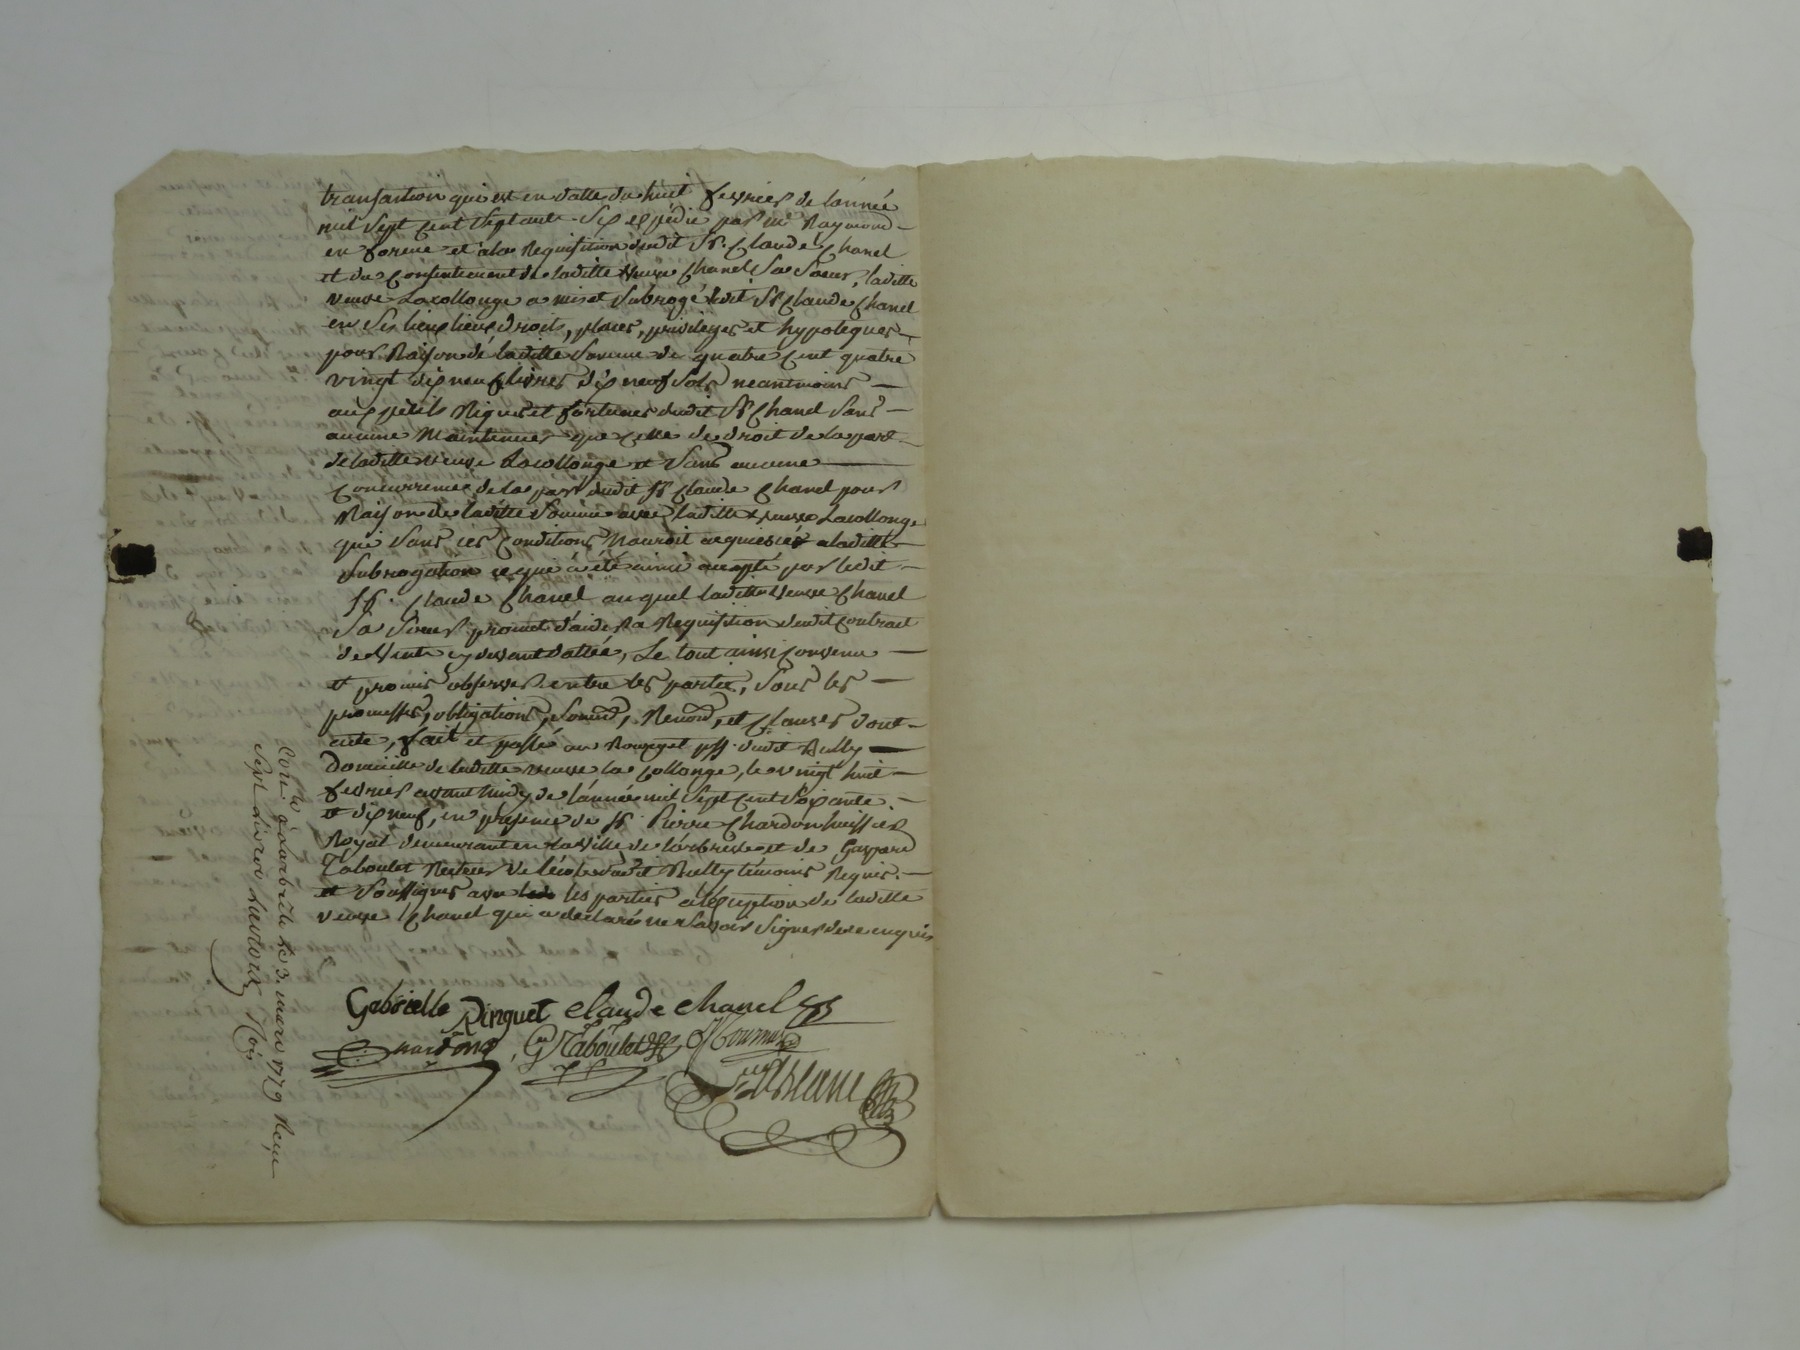 transaction qui est en datte du huit fevrier de lánnée
mil sept cent septante six expédié par me Raymond
en forme et ala Requisition dudit Sr. Claude Chanel
et du consentement de laditte veuve Chanel Sa Soeur, laditte
veuve Lacollonge a mis et Subrogé ledit Sr Claude Chanel
en Ses lieux droits, places, privileges et hypoteques
pour Raison de laditte Somme de quatre cent quatre
vingt dix neuf livres dix neuf Sols neantmoins
aux périls Risques et fortunes dudit Sr Chanel Sans
aucune Maintenue que celle de droit de la part
de laditte veuve Lacollonge et Sans aucune
Concurrence de la part dudit Sr Claude Chanel pour
Raison de laditte Somme avec laditte veuve Lacollonge
qui Sans ces Conditions Nauroit acquiescé a laditte
Subrogation ce qui a été ainsi accepté par ledit
Sr. Claude Chanel auquel laditte veuve Chanel
Sa Soeur promet d'aider a Requisition dudit Contrait
de Vente cy devant datté, Le tout ainsi convenu
et promis observer entre les partie, Sous les
promesses, obligations, Soumd, Renond, et Clauses dont
acte, fait et passé au psse dudit Bully
Domicille de laditte veuve la Collonge, le vingt huit
fevrier avant midy de lánnée mil Sept Cent Soixante
et dix neuf, en présence de Sr Pierre Chardon huissier
Royal demeurant en la Ville de Larbresle et de Gaspard
Taboulet Recteur de lécole dudit Bully témoins Requis
et Soussignés avec les parties aléxception de laditte
veuve Chanel qui a declaré ne Savoir Signer de ce enquis
Gabrielle Pinquet Claude Chanel
Chardon, G Taboulet
Contlé a Larbresle le 3. mars 1779 Reçu
Sept livres